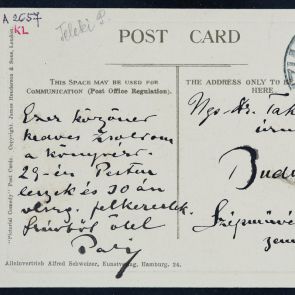 A 2657
KL
Teleki
POST CARD
THIS SPACE MAY BE USED FOR
COMMUNICATION (Post Office Regulation).
THE ADDRESS ONLY TO
HERE
"Pictorial Comedy" Post Cards. Copyright. James Henderson & Sons, London.
Ezer köszönet
kedves
a könyvért.
29-én Pesten
leszek és 30án
felkereslek
ölel
Ngs. Dr. Tak
Bud
Szépművé
zeu
Alleinvertrieb Alfred Schweizer, Kunstverlag, Hamburg. 24.